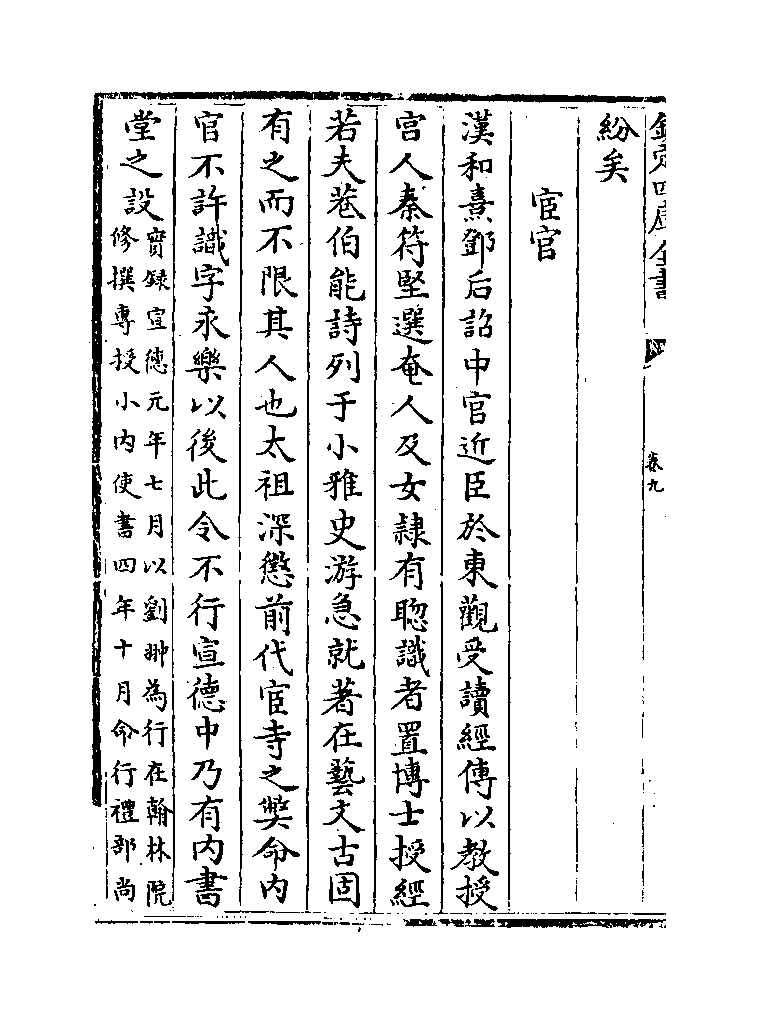 欽定四庫全書
卷九
紛矣
宦官
漢和熹鄧后詔中官近臣於東觀受讀經傳以教授
宮人秦符堅選奄人及女隷有聰識者置博士授經
若夫巷伯能詩列于小雅史游急就著在藝文古固
有之而不限其人也太祖深懲前代宦寺之弊命内
官不許識字永樂以後此令不行宣德中乃有内書
堂之設
實録宣德元年七月以劉翀為行在翰林院
修撰專授小内使書四年十月命行禮部尚